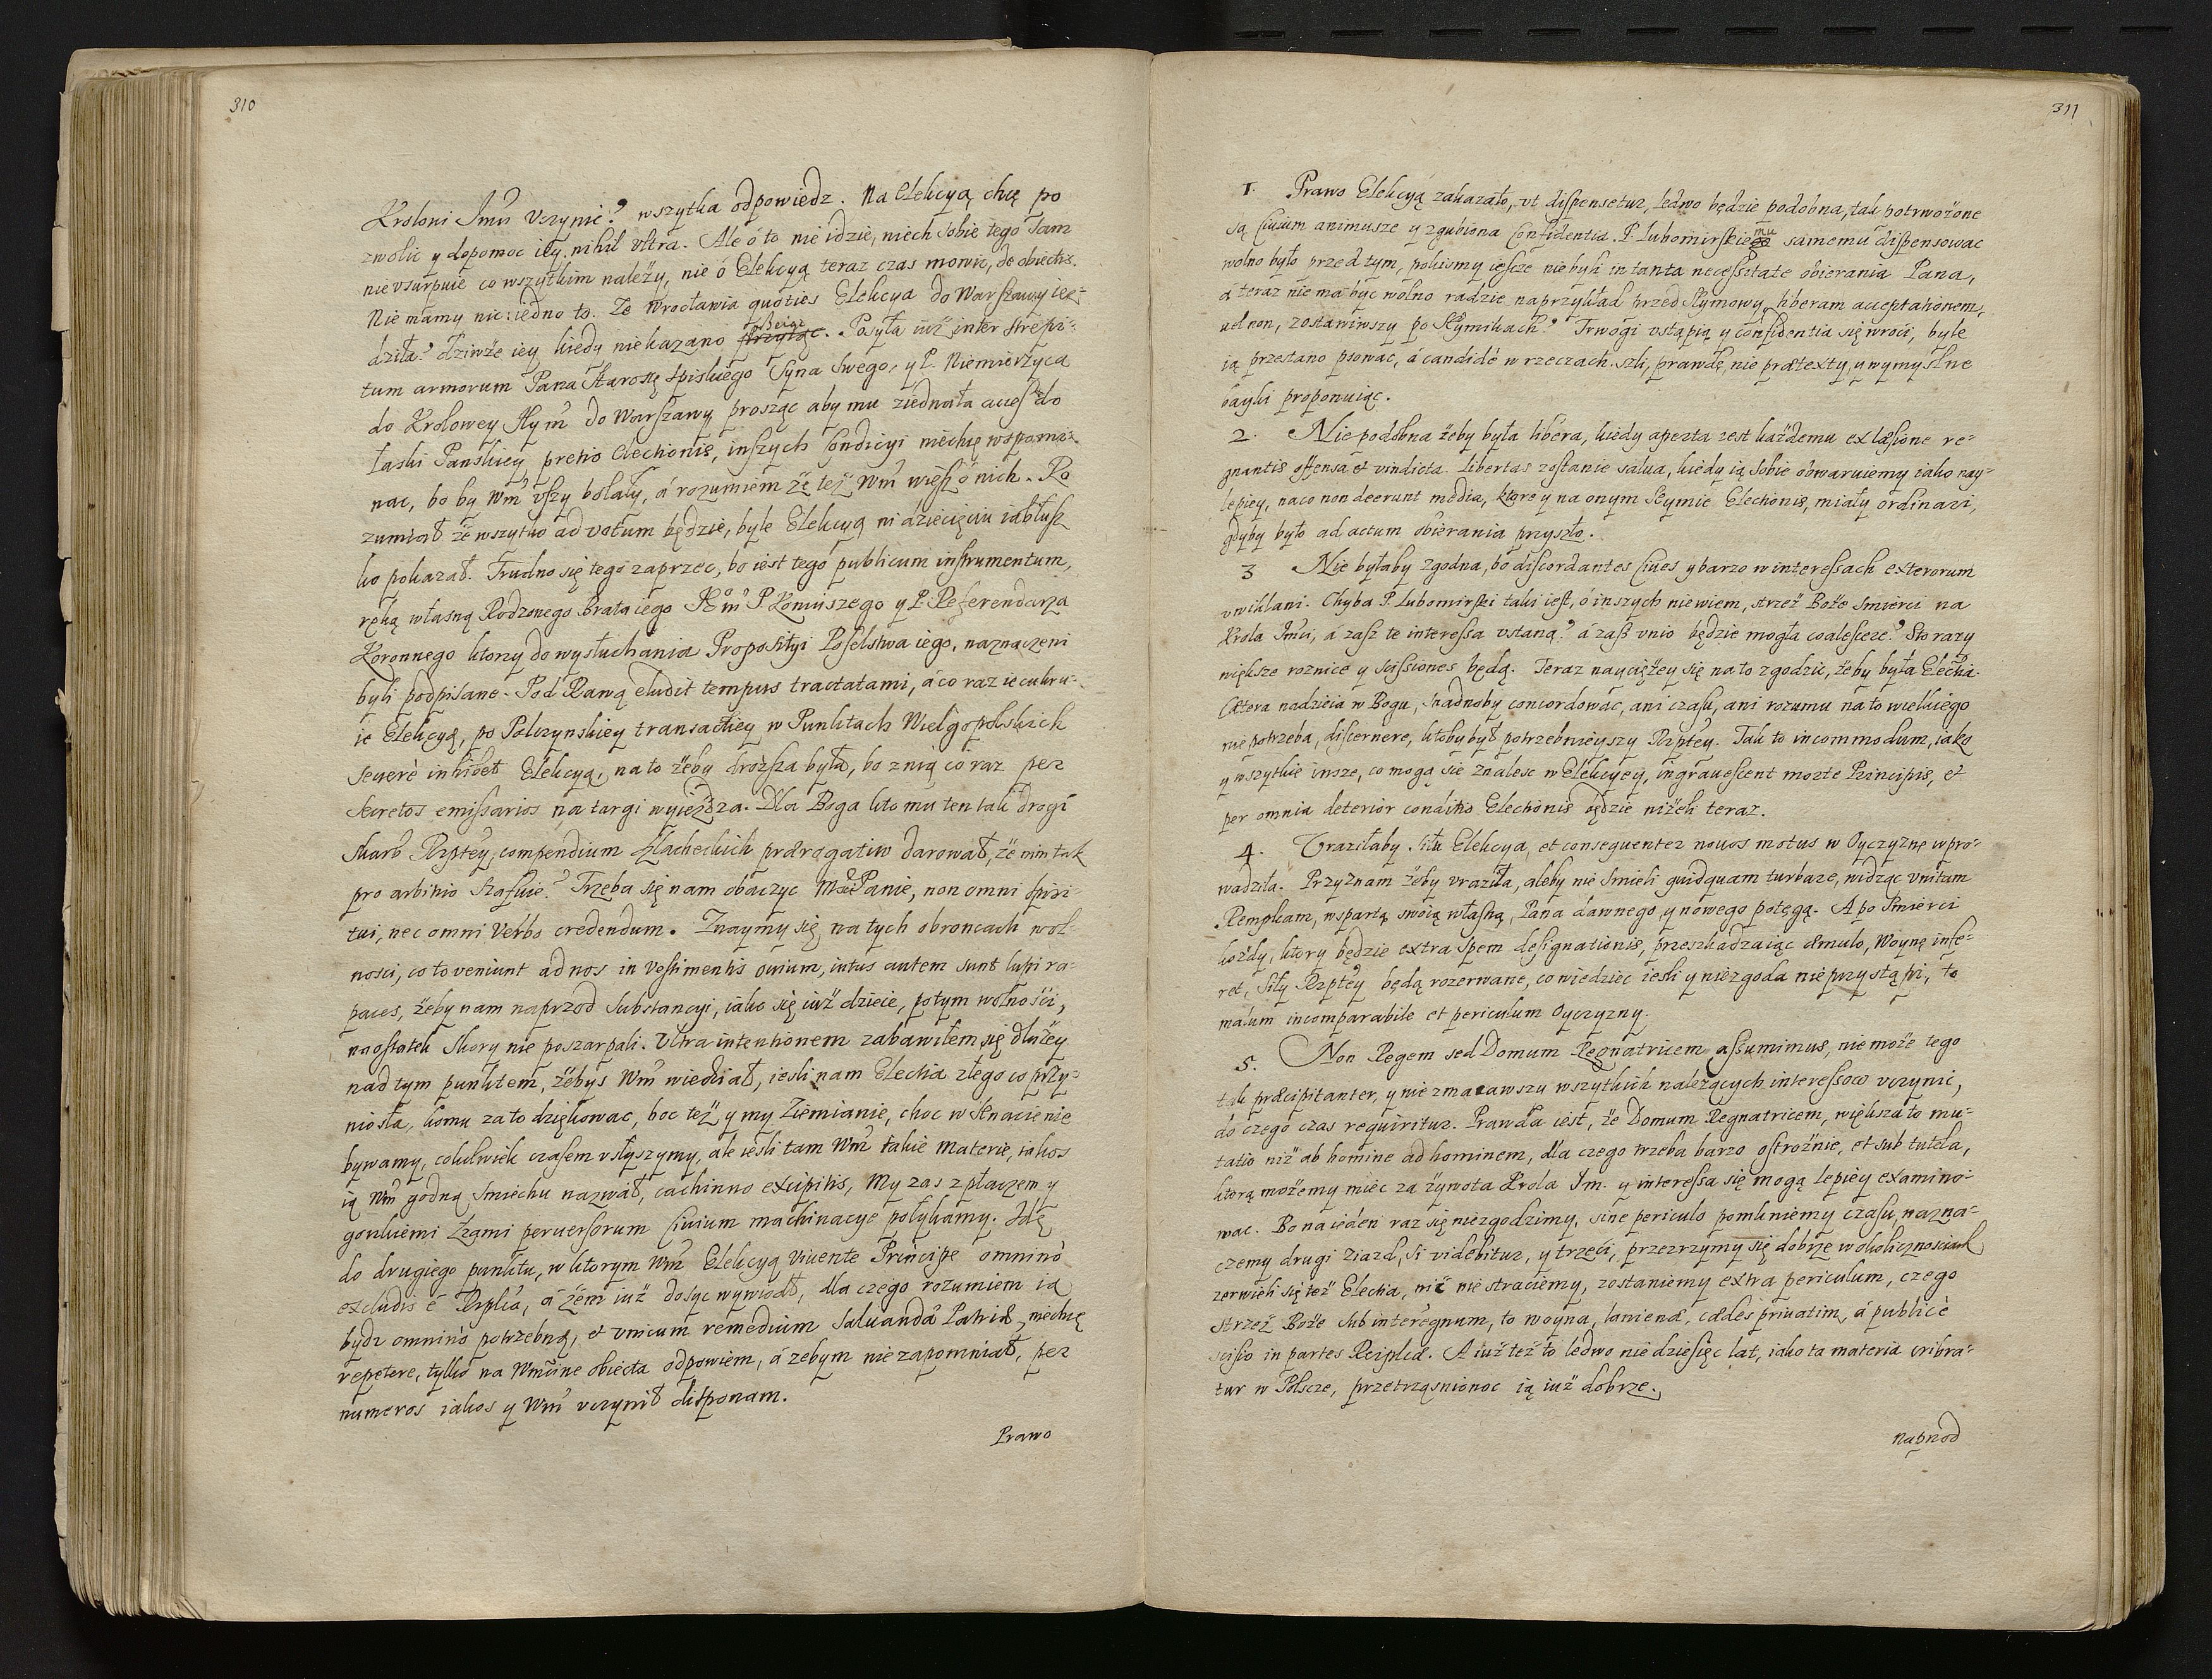 310
Krolowi Jmći vczynić? wszytka odpowiedz. Na Elekcyą chcę po
zwolic y dopomoc iey, nihil vltra. Ale ó to nie idzie, niech sobie tego sam
nie vsurpuie co wszytkim należy, nie ó Elekcyą teraz czas mowic, de obiectis.
Nie mamy nic: iedno to. Ze Wrocławia quoties Elekcya do Warszawy ieź-
dziła? dziwże iey kiedy nie kazano . Posyła iuż inter strepi-
tum armorum Pana Starostę Spiskiego Syna Swego, y P. Niemierzyca
do Krolowey Jey Mći do Warszawy prosząc aby mu ziednała acces do
łaski Panskiey pretio Electionis, inszych Condicyi niechcę wspomi-
nac, bo by Wmći vszy bolały, á rozumiem że też Wmć wiesz ó nich. Ro
zumiał że wszytko ad votum będzie, byle Elekcyą ni dziecięciu iabłusz
ko pokazał. Trudno się tego zaprzec, bo iest tego publicum instrumentum,
ręką własną Rodzonego Brata iego JE Mći P. Koniuszego y P. Referendarza
Koronnego ktorzy do wysłuchania Propositiyi Poselstwa iego, naznaczeni
byli podpisane. Pod Rawą eludit tempus tractatami, á co raz iecukru-
ie Elekcyą, po Palczynskiey transactiey w Punktach Wielgopolskich
severè inhibet Elekcyą, na to żeby droższa była, bo z nią co raz per
secretos emissarios na targi wyieżdza. Dla Boga kto mu ten tak drogi
skarb Rzptey, compendium szlacheckich prærogatiw darował, że nim tak
pro arbitrio szafuie? Trzeba się nam obaczyc Mći Panie, non omni spiri-
tui, nec omni Verbo credendum. Znaymy się na tych obroncach wol-
nosci, co to veniunt ad nos in vestimentis ovium, intus autem sunt lupi ra-
paces, żeby nam naprzod Substancyi, iako się iuż dzieie, potym wolności,
naostatek skory nie poszarpali. Vltra intentionem zabawiłem się dłużey
nad tym punktem, żebys Wmć wiedział, iesli nam Electia złego co przy-
niosła, komu za to dziękowac, boc też y my Ziemianie, choc w Senacie nie
bywamy, cokolwiek czasem vsłyszymy, ale iesli tam Wmć takie materie, iakos
ią Wmć godną smiechu nazwał, cachinno excipitis, My zas z płaczem y
gorzkiemi łzami perversorum Civium machinacye połykamy. Idę
do drugiego punktu, w ktorym Wmć Elekcyą vivente Principe omninò
excludis è Rzplca, á żem iuż dosyc wywiodł, dla czego rozumiem ią
bydz omninò potrzebną, et vnicum remedium salvandæ Patriæ, niechcę
repetere, tylko na Wmścine obiecta odpowiem, á zebym nie zapomniał, per
numeros iakos y Wmć vczynił disponam.
Prawo
311
1. Prawo Elekcyą zakazało, vt dispensetur, ledwo będzie podobna, tak potrwożone
są Civium animusze y zgubiona Confidentia. P. Lubomirskiemu samemu dispensowac
wolno było przed tym, pokiesmy iescze nie byli in tanta necessitate obierania Pana,
á teraz nie ma byc wolno radzic naprzykład przed Seymowy, liberam acceptationem,
vel non, zostawiwszy po Seymikach? Trwogi vstąpią y confidentia się wroci, byle
ią przestano psowac, á candidè w rzeczach szli, prawdę, nie prætexty, y wymyslne
bayki proponuiąc.
2. Nie podobna żeby była libera, kiedy aperta iest każdemu ex læsione re-
gnantis offensa et vindicta. Libertas zostanie salva, kiedy ią sobie obwaruiemy iako nay-
lepiey, na co non deerunt media, ktore y na onym Seymie Electionis, miały ordinari,
gdyby było ad actum obierania przyszło.
3 Nie byłaby zgodna, bo discordantes Cives y barzo w interessach exterorum
vwikłani. Chyba P. Lubomirski taki iest, ó inszych nie wiem, strzeż Boże smierci na
Krola Jmći, á zasz te interessa vstaną? á zasz vnio będzie mogła coalescere? Sto razy
większe roznice y scissiones będą. Teraz naycięźey się na to zgodzic, żeby była Electia.
Cætera nadzieia w Bogu, snadnoby concordowac, ani czasu, ani rozumu na to wielkiego
nie potrzeba, discernere, ktoby był potrzebnieyszy Rzptey. Tak to incommodum, iako
y wszytkie insze, co mogą sie znalesc w Elekcyey, ingravescent morte Principis, et
per omnia deterior conditio Electionis będzie niżeli teraz.
4. Vraziłaby siła Elekcya, et consequenter novos motus w Oyczyznę wpro-
wadziła. Przyznam żeby vraziła, aleby nie śmieli quidquam turbare, widząc vnitam
Rempcam, wspartą swoią własną, Pana dawnego y nowego potęgą. A po smierci
każdy, ktory będzie extra spem designationis, przeszkadzaiąc æmulo, Woynę infe-
ret, siły Rzptey będą rozerwane, co wiedziec iesli y niezgoda nie przystąpi, to
malum incomparabile et periculum Oyczyzny.
5. Non Regem sed Domum Regnatricem assumimus, nie może tego
tak præcipitanter, y nie zmacawszy wszytkich należących interessow vczynic,
do czego czas requiritur. Prawda iest, że Domum Regnatricem, większa to mu-
tatio niż ab homine ad hominem, dla czego trzeba barzo ostrożnie, et sub tutela,
ktorą możemy miec za żywota Krola Jm. y interessa się mogą lepiey examino-
wac. Bo na ieden raz się niezgodzimy, sine periculo pomkniemy czasu, nazna-
czemy drugi Ziazd, si videbitur, y trzeci, przezrzymy się dobrze w okolicznosciach
zerwieli się też Electia, nic nie straciemy, zostaniemy extra periculum, czego
strzeż Boże sub interegnum, to woyna, lanienæ, cædes privatim, á publicè
scissio in partes Reiplcæ. A iuż też to ledwo nie dziesięc lat, iako ta materia cribra-
tur w Polscze, przetrząsnionoc ią iuż dobrze.
Naprzod